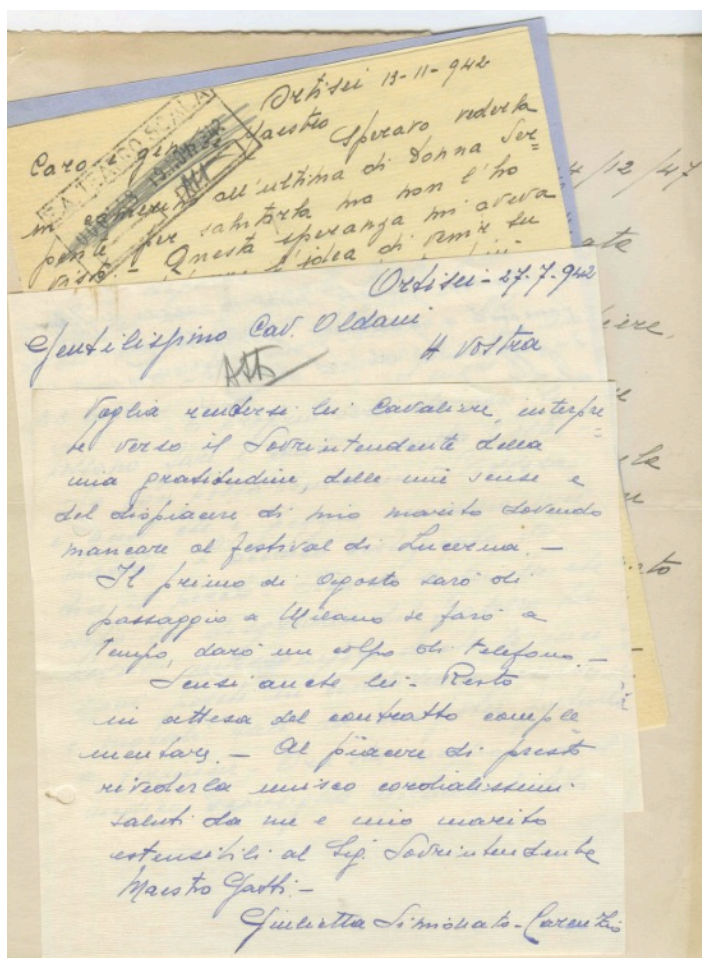 Ortisei 13-11-942
Caro e gentile Maestro Speravo vederla
in camerino all'ultima di Donna Ser=
pente per salutarla ma non l'ho
vista - Questa speranza mi aveva
l'idea di venir su
E.A. TEATRO SCALA
4/12/47
Ortisei - 27.7.942
Gentilissimo Cav. Oldani
A Vostra
Voglia rendersi lei Cavaliere, interpre
te verso il Sovrintendente della
mia gratitudine, delle mie scuse e
del dispiacere di mio marito dovendo
mancare al festival di Lucerna. -
Il primo di Agosto sarò di
passaggio a Milano se farò a
tempo, darò un colpo di telefono. -
Scusi anche lei - Resto
in attesa del contratto comple
mentare. - Al piacere di presto
rivederla unisco cordialissimi
saluti da me e mio marito
estensibili al Sig. Sovrintendente
Maestro Gatti. -
Giulietta Simionato-Carenzio